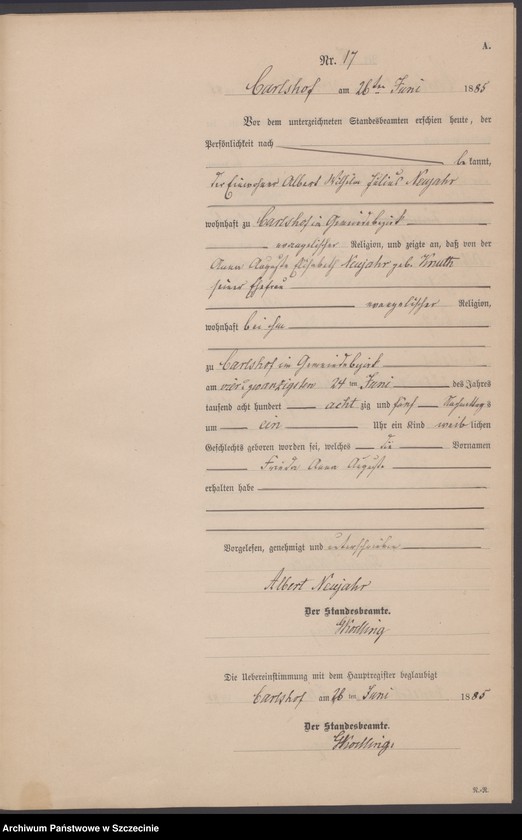 A.
Nr. 17
Carlshof am 26ten Juni 1885
Vor dem unterzeichneten Standesbeamten erschien heute, der
Persönlichkeit nach
bekannt,
der Einwohner Albert Wilhelm Julius Neujahr
wohnhaft zu Carlshof im Gemeindebezirk
evangelischer Religion, und zeigte an, daß von der
Anna Auguste Elisabeth Neujahr geb. Knuth
seiner Ehefrau
evangelischer Religion,
wohnhaft bei ihm
zu Carlshof im Gemeindebezirk
am vier u zwanzigsten 24 ten Juni des Jahres
tausend acht hundert acht zig und fünf Nachmittags
um ein Uhr ein Kind weiblichen
Geschlechts geboren worden sei, welches die Vornamen
Frieda Anna Auguste
erhalten habe
Vorgelesen, genehmigt und unterschrieben
Albert Neujahr
Der Standesbeamte.
Die Uebereinstimmung mit dem Hauptregister beglaubigt
Carlshof am 26 ten Juni 1885
Der Standesbeamte.
Archiwum Państwowe w Szczecinie